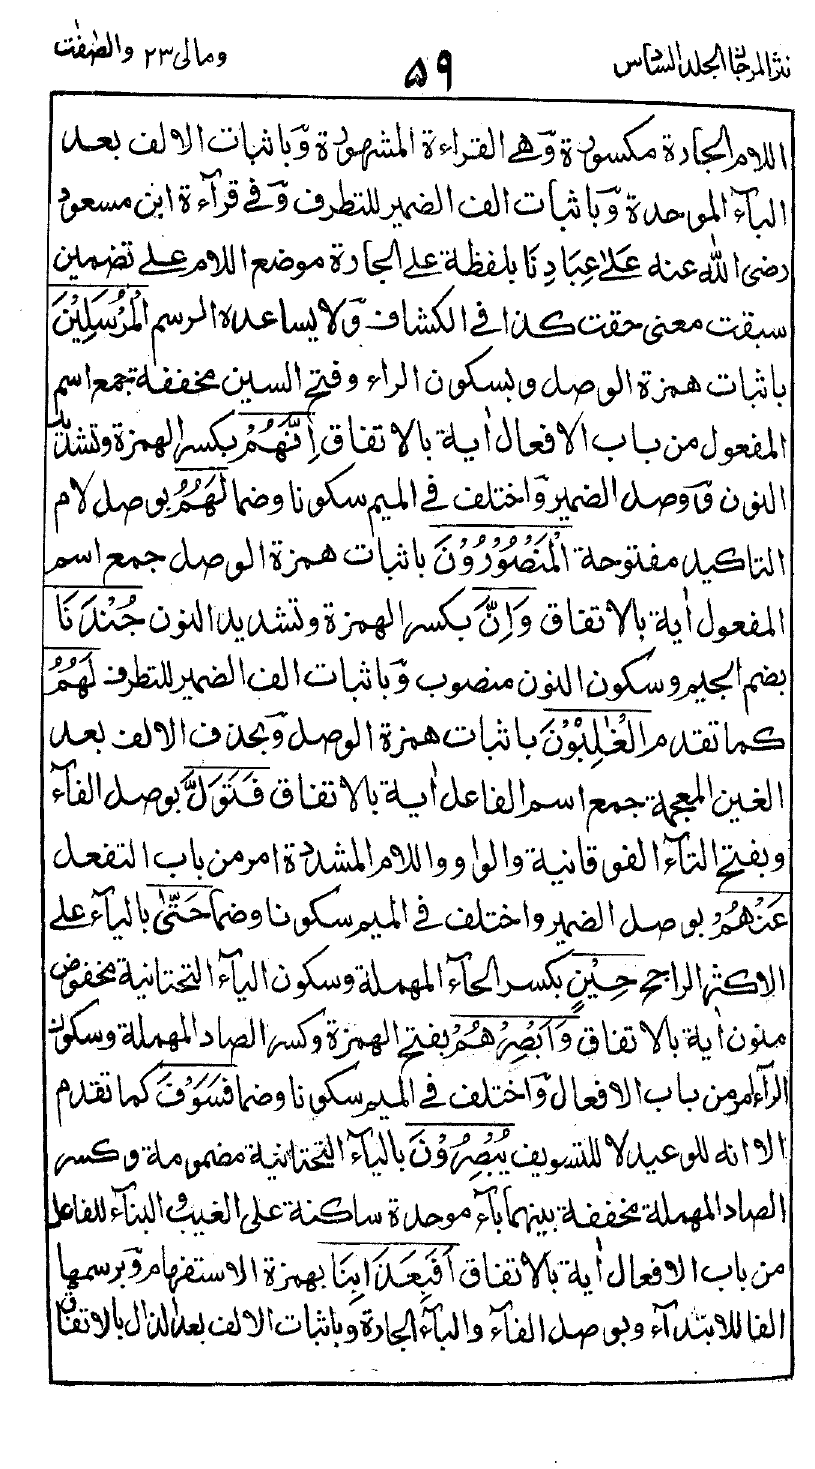 نثر المرجان المجلد السادس ٥٩ ومالى ٢٣ والصّٰفّٰت
اللام الجارة مكسورة وهي القراءة المشهورة وباثبات الالف بعد
البآء الموحدة وباثبات الف الضمير للتطرف وفي قرآءة ابن مسعود
رضى الله عنه عَلٰى عِبَادِنَا بلفظة على الجارة موضع اللام على تضمين
سبقت معنى حقت كذا في الكشاف ولا يساعده الرسم الْمُرْسَلِيْنَ
باثبات همزة الوصل وبسكون الراء وفتح السين مخففة جمع اسم
المفعول من باب الافعال اٰية بالاتفاق اِنَّهُمْ بكسر الهمزة وتشديد
النون ووصل الضمير واختلف في الميم سكونا وضما لَهُمُ بوصل لام
التاكيد مفتوحة الْمَنْصُوْرُوْنَ باثبات همزة الوصل جمع اسم
المفعول اٰية بالاتفاق وَاِنَّ بكسر الهمزة وتشديد النون جُنْدَنَا
بضم الجيم وسكون النون منصوب وباثبات الف الضمير للتطرف لَهُمُ
كما تقدم الْغٰلِبُوْنَ باثبات همزة الوصل وبحذف الالف بعد
الغين المعجمة جمع اسم الفاعل اٰية بالاتفاق فَتَوَلَّ بوصل الفآء
وبفتح التآء الفوقانية والواو واللام المشددة امر من باب التفعل
عَنْهُمْ بوصل الضمير واختلف في الميم سكونا وضما حَتّٰى بالياء على
الاكثر الراجح حِيْنٍ بكسر الحآء المهملة وسكون اليآء التحتانية مخفوض
منون اٰية بالاتفاق وَاَبْصِرْهُمْ بفتح الهمزة وكسر الصاد المهملة وسكون
الرآء امر من باب الافعال واختلف في الميم سكونا وضما فَسَوْفَ كما تقدم
الا انه للوعيد لا للتسويف يُبْصِرُوْنَ باليآء التحتانية مضمومة وكسر
الصاد المهملة مخففة بينهما بآء موحدة ساكنة على الغيب والبنآء للفاعل
من باب الافعال اٰية بالاتفاق اَفَبِعَذَابِنَا بهمزة الاستفهام وبرسمها
الفا للابتدآء وبوصل الفآء والبآء الجارة وباثبات الالف بعد الذال بالاتفاق